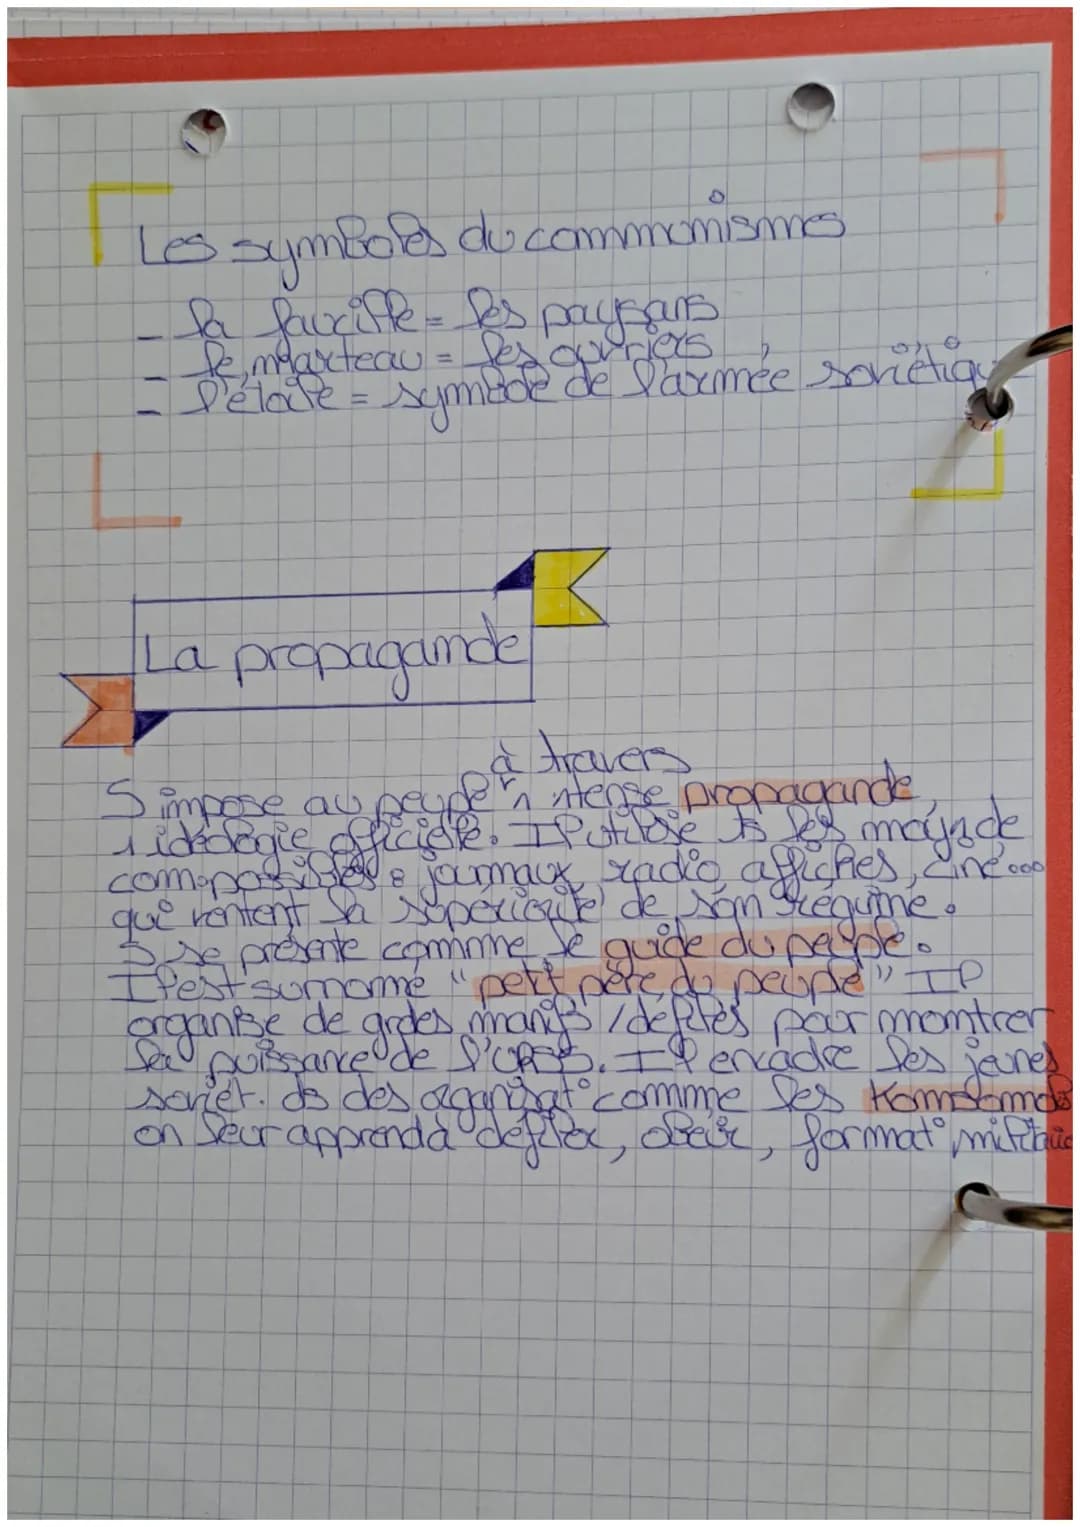 Les symboles du commmunismes
- la faucille = les paysans
- le marteau = les ouvriers
- l'étoile = symbole de l'armée soviétiqu
La propagande
à travers
S impose au peuple 1 intense propagande,
1 idéologie officielle. Il utilise ts les moyn de
com possibles : journaux, radio, affiches, ciné...
qui ventent la supériorité de son régime.
S se présente commme le guide du peuple.
Il est surnomé "petit père du peuple" Il
organise de grdes manifs / défilés pour montrer
la puissance de l'URSS. Il encadre les jeunes
soviet. ds des organisat° comme les Komsomols
on leur apprend à défiler, obéir, format° militair